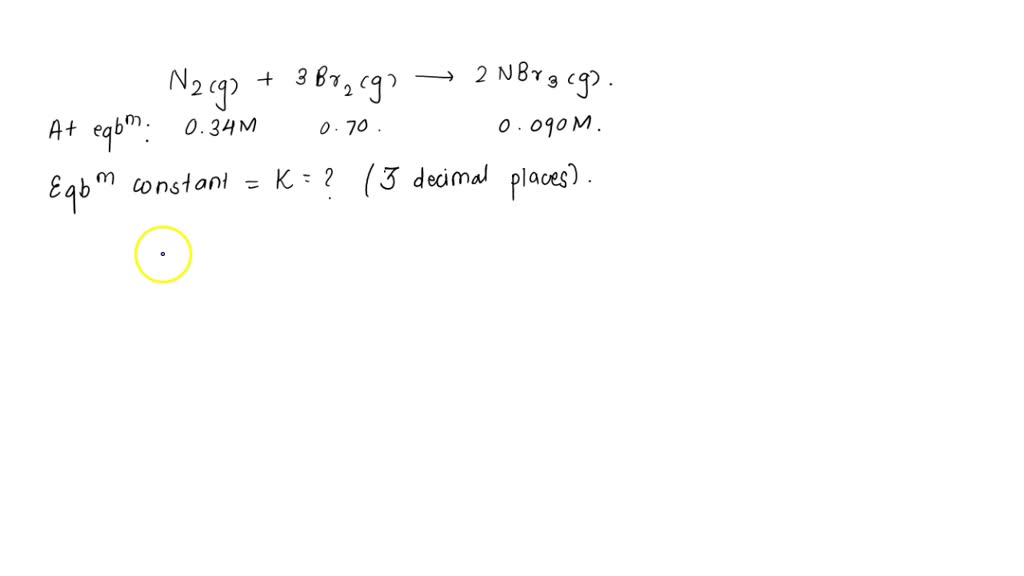 N₂(g) + 3Br₂(g) → 2NBr₃(g).
At eqbᵐ: 0.34M 0.70. 0.090M.
Eqbᵐ constant = K = ? (3 decimal places).